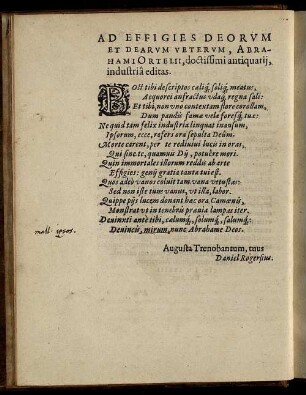 AD EFFIGIES DEORVM
ET DEARVM VETERVM, ABRA-
HAMI ORTELII, doctissimi antiquarij,
industriâ editas.
POst tibi descriptos cæliq́, soliq́, meatus,
Æquorei anfractus vdaq́, regna sali:
Et tibi non vno contextam flore corollam,
Dum pandis fama vele foresq́, tuæ:
Ne quid tam felix industria linquat inausum,
Ipsorum, ecce, refers ora sepulta Deûm.
Morte carent, per te rediuiui lucis in oras,
Qui sine te, quamuis Dij, potuere mori.
Quin immortales illorum reddis ab ære
Effigies: genij gratia tanta tui est.
Quos adeò vanos coluit tam vana vetustas:
Sed non iste tuus vanus, vt illa, labor.
Quippe pijs lucem donant hæc ora Camœnis,
Monstrat vt in tenebris prauia lampas iter.
Deuinxti antè tibi, calumq́, solumq́, salumq́:
Deuincis, mirum, nunc Abrahame Deos.
ipsos.
Augusta Trenobantum, tuus
Daniel Rogersius.